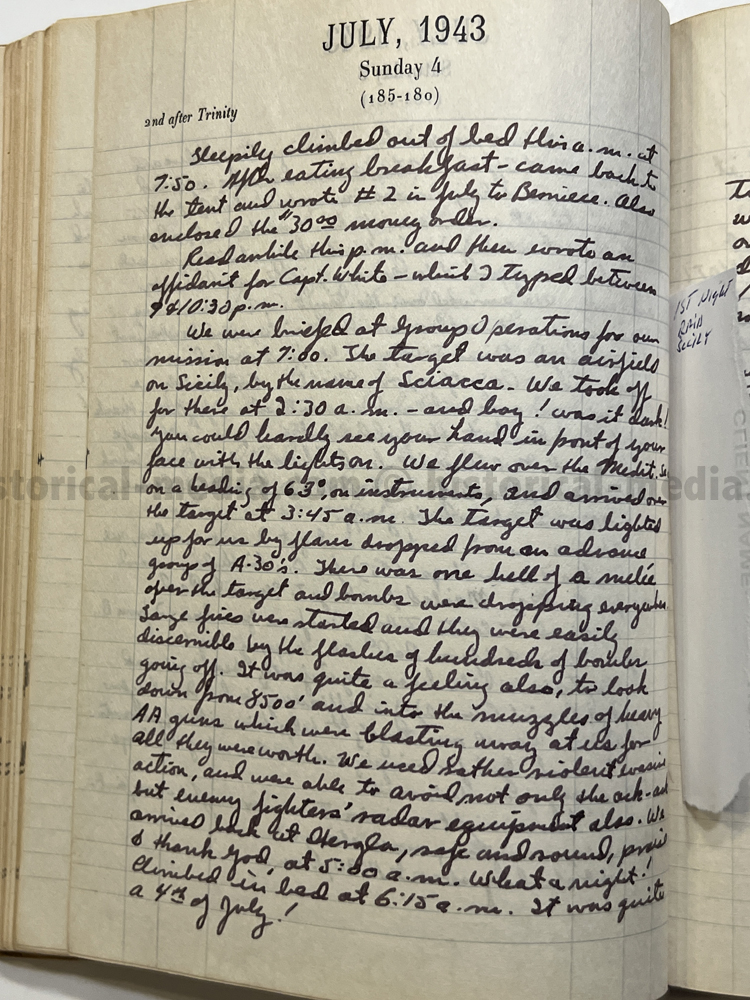 JULY, 1943
Sunday 4
(185-180)
2nd after Trinity
Sleepily climbed out of bed this a.m. at
7:50. After eating breakfast - came back to
the tent and wrote #2 in July to Berniece. Also
enclosed the $30.00 money order.
Read awhile this p.m. and then wrote an
affidavit for Capt. White - which I typed between
9 & 10:30 p.m.
We were briefed at Group Operations for our
mission at 7:00. The target was an airfield
on Sicily, by the name of Sciacca. We took off
for there at 2:30 a.m. - and boy! was it dark!
You could hardly see your hand in front of your
face with the lights on. We flew over the Medit.
on a heading of 63°, on instruments, and arrived over
the target at 3:45 a.m. The target was lighted
up for us by flares dropped from an advance
group of A-30's. There was one hell of a melée
over the target and bombs were dropping everywhere
Large fires were started and they were easily
discernible by the flashes of hundreds of bombs
going off. It was quite a feeling also, to look
down from 8500' and into the muzzles of heavy
AA guns which were blasting away at us for
all they were worth. We used rather violent evasive
action, and were able to avoid not only the ack-ack
but enemy fighters' radar equipment also. We
arrived back at Hergla, safe and sound, praise
& thank God, at 5:00 a.m. What a night!
Climbed in bed at 6:15 a.m. It was quite
a 4th of July!
1ST Night
RAID
SCILY